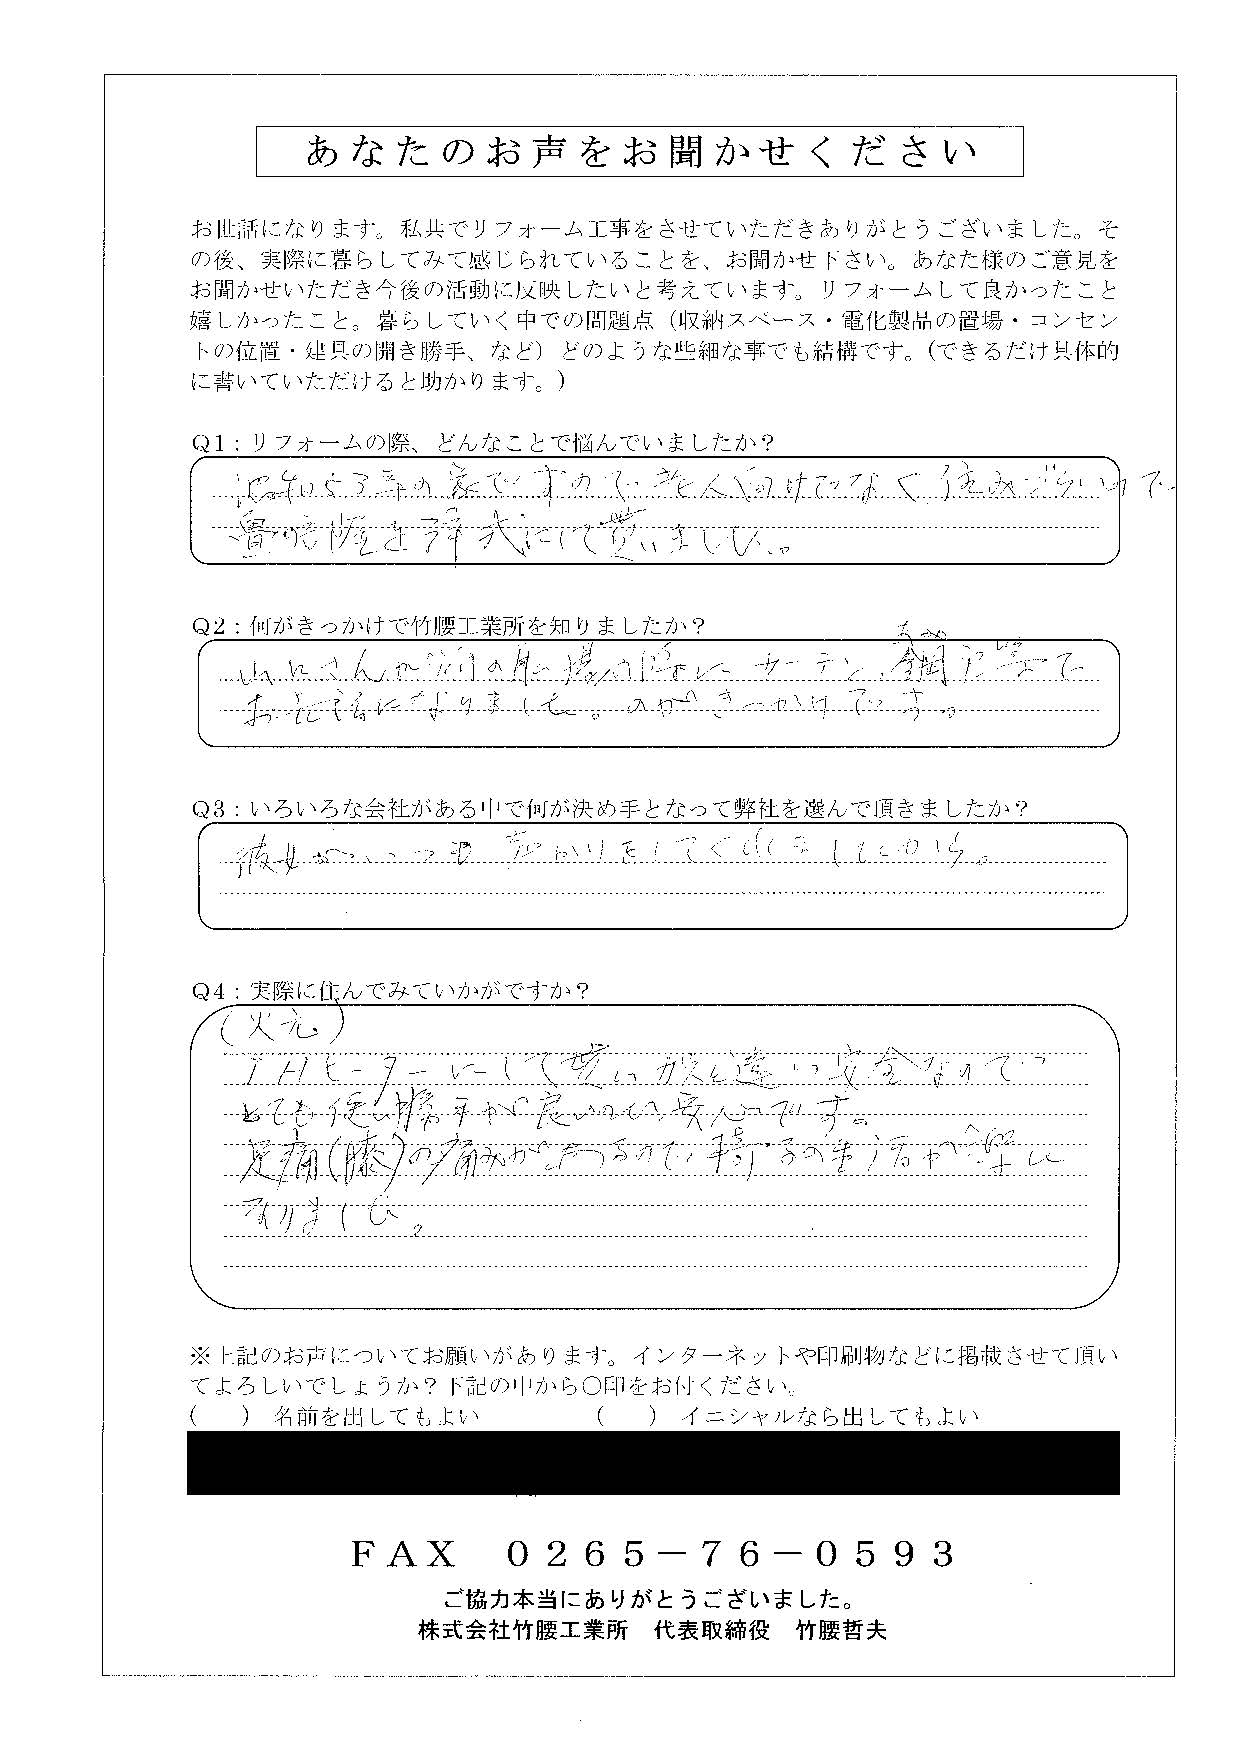 あなたのお声をお聞かせください
お世話になります。私共でリフォーム工事をさせていただきありがとうございました。そ
の後、実際に暮らしてみて感じられていることを、お聞かせ下さい。あなた様のご意見を
お聞かせいただき今後の活動に反映したいと考えています。リフォームして良かったこと
嬉しかったこと。暮らしていく中での問題点（収納スペース・電化製品の置場・コンセン
トの位置・建具の開き勝手、など）どのような些細な事でも結構です。(できるだけ具体的
に書いていただけると助かります。)
Q1：リフォームの際、どんなことで悩んでいましたか？
昭和53年の家ですので老人向けでなく住みづらいので
畳 を洋式にして貰いました。
Q2：何がきっかけで竹腰工業所を知りましたか？
さんが の職場の にカーテン、
お世話になりました。のがきっかけです。
Q3：いろいろな会社がある中で何が決め手となって弊社を選んで頂きましたか？
彼女がいつも をしてくれましたから。
Q4：実際に住んでみていかがですか？
(火元)
IHヒーターにして貰いガスと違い安全なので
とても使い勝手が良いので安心です。
足痛(膝)の痛みが有るので椅子の生活が楽に
なりました。
※上記のお声についてお願いがあります。インターネットや印刷物などに掲載させて頂い
てよろしいでしょうか？下記の中から〇印をお付ください。
(　　)　名前を出してもよい　　　　　(　　)　イニシャルなら出してもよい
ＦＡＸ　０２６５－７６－０５９３
ご協力本当にありがとうございました。
株式会社竹腰工業所　代表取締役　竹腰哲夫